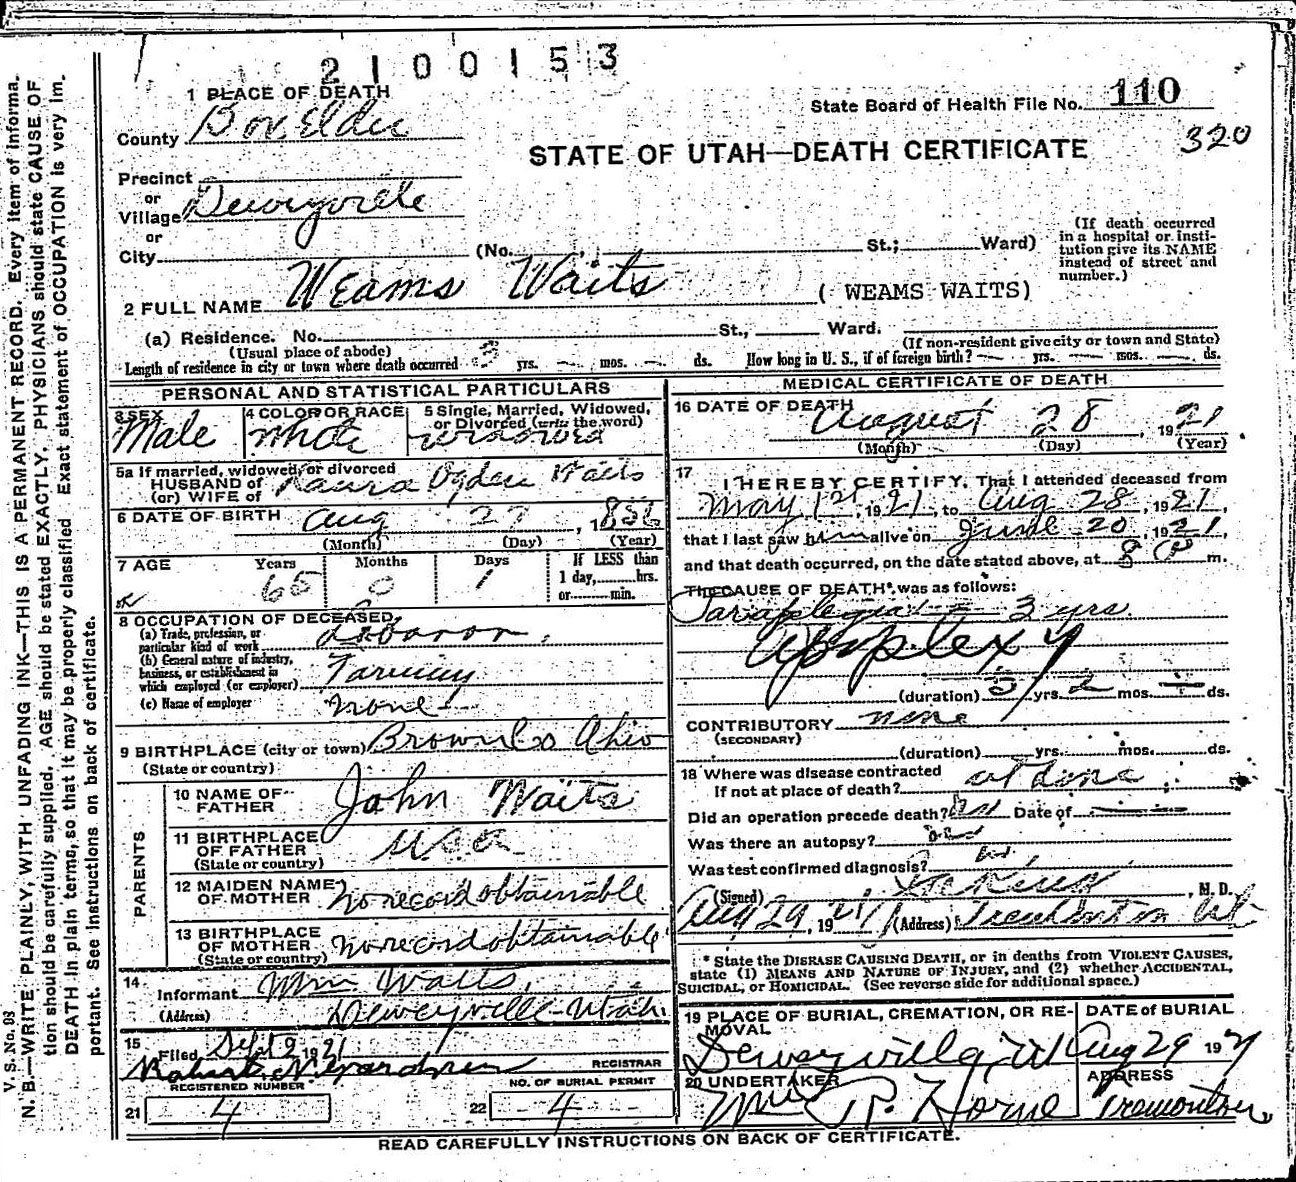 2100153
1 PLACE OF DEATH
State Board of Health File No. 110
County Box Elder
320
STATE OF UTAH—DEATH CERTIFICATE
Precinct
or
Village Deweyville
or
City (No. St.; Ward)
(If death occurred in a hospital or institution give its NAME instead of street and number.)
2 FULL NAME Weams Waits ( WEAMS WAITS)
(a) Residence. No. St., Ward.
(Usual place of abode) (If non-resident give city or town and State)
Length of residence in city or town where death occurred 3 yrs. — mos. — ds. How long in U. S., if of foreign birth? — yrs. — mos. — ds.
PERSONAL AND STATISTICAL PARTICULARS
3 SEX Male
4 COLOR OR RACE White
5 Single, Married, Widowed, or Divorced (write the word) widowed
5a If married, widowed, or divorced
HUSBAND of Laura Ogden Waits
(or) WIFE of
6 DATE OF BIRTH Aug 27, 1856
(Month) (Day) (Year)
7 AGE Years 65 Months 0 Days 1
If LESS than 1 day, hrs. or min.
8 OCCUPATION OF DECEASED
(a) Trade, profession, or particular kind of work Laboror
(b) General nature of industry, business, or establishment in which employed (or employer) Farming
(c) Name of employer none
9 BIRTHPLACE (city or town) Brown Co Ohio
(State or country)
PARENTS
10 NAME OF FATHER John Waits
11 BIRTHPLACE OF FATHER U S A
(State or country)
12 MAIDEN NAME OF MOTHER No record obtainable
13 BIRTHPLACE OF MOTHER No record obtainable
(State or country)
14
Informant Wm Waits,
(Address) Deweyville Utah.
15
Filed Sept 2 1921
REGISTRAR
REGISTERED NUMBER
21 4
NO. OF BURIAL PERMIT
22 4
MEDICAL CERTIFICATE OF DEATH
16 DATE OF DEATH August 28, 1921
(Month) (Day) (Year)
17
I HEREBY CERTIFY, That I attended deceased from
May 1st, 1921, to Aug 28, 1921,
that I last saw him alive on June 20, 1921,
and that death occurred, on the date stated above, at 8 P m.
The CAUSE OF DEATH* was as follows:
Paraplegia — 3 yrs
Apoplexy
(duration) 3 yrs. 2 mos. — ds.
CONTRIBUTORY none
(SECONDARY)
(duration) yrs. mos. ds.
18 Where was disease contracted
If not at place of death? at home
Did an operation precede death? no Date of —
Was there an autopsy? no
Was test confirmed diagnosis?
(Signed) , M. D.
Aug 29, 1921 (Address) Tremonton Ut
* State the DISEASE CAUSING DEATH, or in deaths from VIOLENT CAUSES,
state (1) MEANS AND NATURE OF INJURY, and (2) whether ACCIDENTAL,
SUICIDAL, or HOMICIDAL. (See reverse side for additional space.)
19 PLACE OF BURIAL, CREMATION, OR REMOVAL
Deweyville, Ut
DATE OF BURIAL
Aug 29 1921
20 UNDERTAKER
Wm R. Horne
ADDRESS
Tremonton
READ CAREFULLY INSTRUCTIONS ON BACK OF CERTIFICATE.
V. S. No. 98
N. B.—WRITE PLAINLY, WITH UNFADING INK—THIS IS A PERMANENT RECORD. Every item of informa-
tion should be carefully supplied. AGE should be stated EXACTLY. PHYSICIANS should state CAUSE OF
DEATH in plain terms, so that it may be properly classified. Exact statement of OCCUPATION is very im-
portant. See instructions on back of certificate.